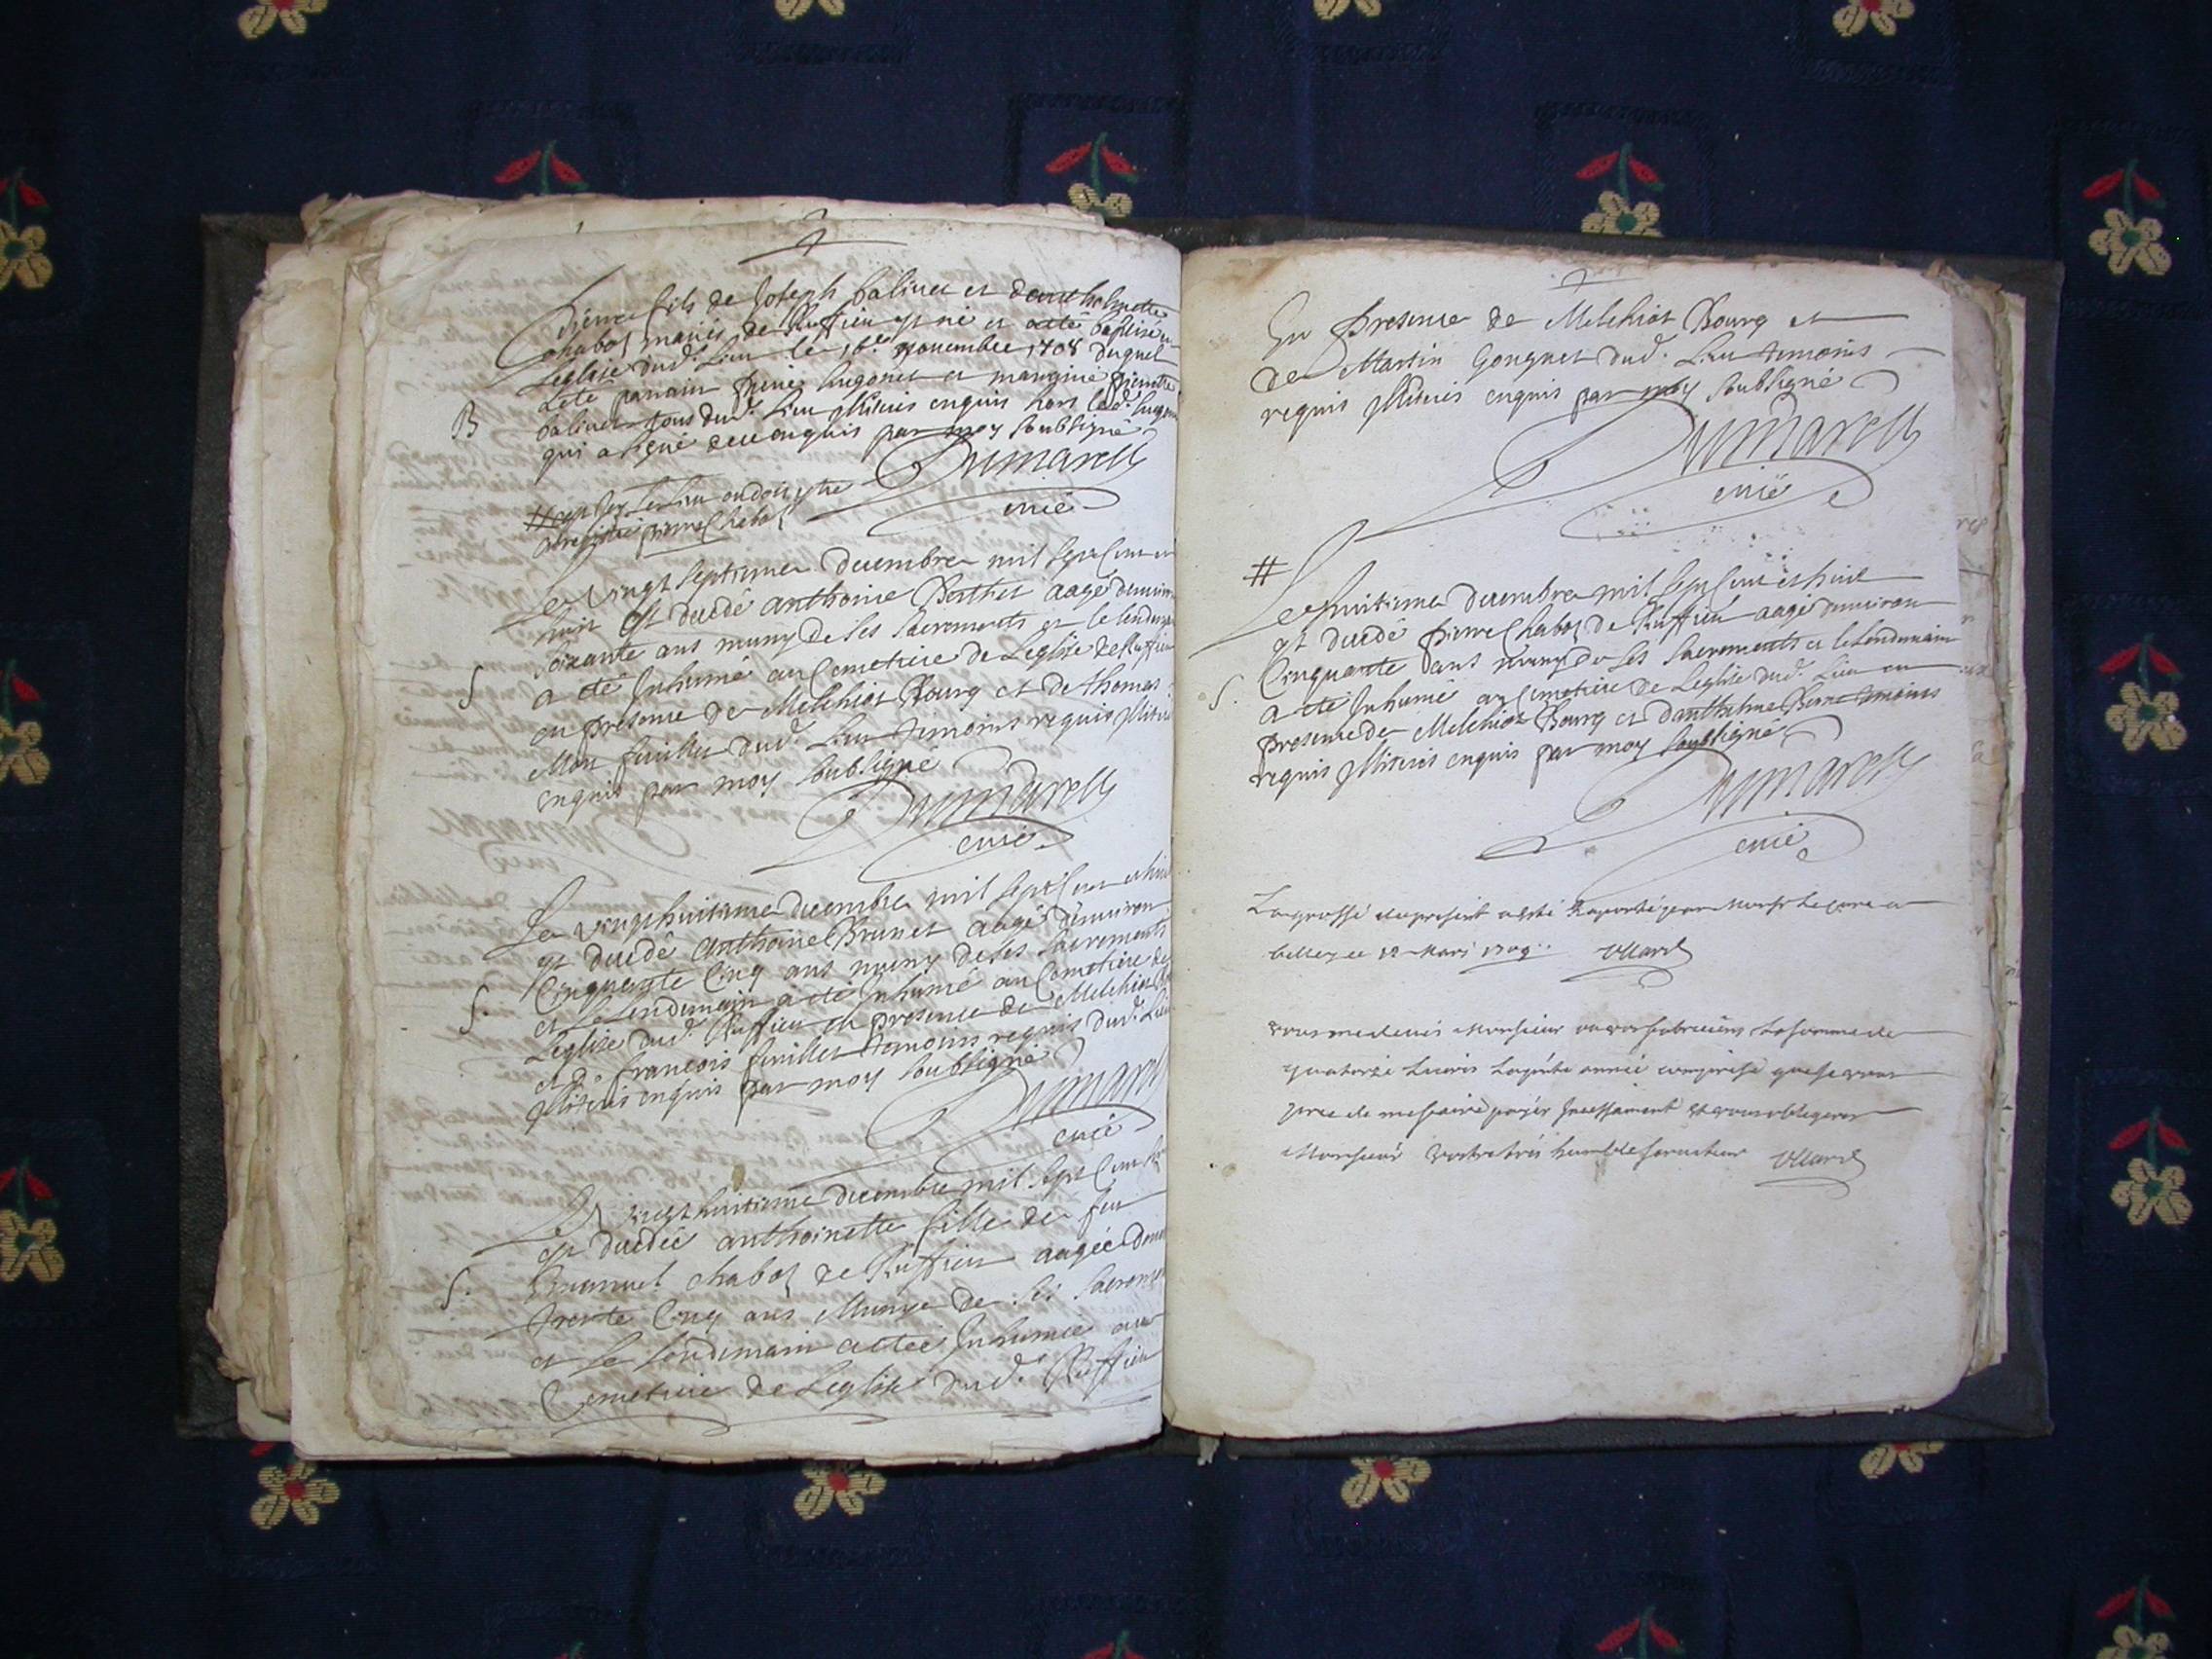 Pierre fils de Joseph balivet et danthelmette
chabot mariés de Ruffieu est né et a été baptisé en
Leglise dud. Lieu le 16e novembre 1708 duquel
a été parrain pierre hugonet et marrine pierrette
B balivet tous dud. Lieu illiterés enquis hors led. hugonet
qui a signé de ce enquis par moy soubsigné
Dumarest
curé
# cest sur ce Lieu ou doit etre
pierre Chabot
Le vingt septieme decembre mil sept Cent et
huit est decedé anthoine Berthet aagé denviron
soixante ans muny de ses sacrements et le lendemain
S a été Inhumé au Cemetiere de Leglise de Ruffieu
en presence de Melchiot Bourg et de thomas
Mon feuillet dud. Lieu temoins requis illiterés
enquis par moy soubsigné
Dumarest
curé
Le vingt huitieme decembre mil sept Cent et huit
est decedé anthoine Brunet aagé denviron
Cinquante Cinq ans muny de ses sacrements
S. et le lendemain a été Inhumé au Cemetiere de
Leglise dud. Ruffieu en presence de Melchiot
et de francois feuillet temoins requis dud. Lieu
illiterés enquis par moy soubsigné
Dumarest
curé
Le vingt huitieme decembre mil sept Cent
est decedée anthoinette fille de feu
S. Emanuel chabot de Ruffieu aagée
trente Cinq ans Munye de ses sacrements
et le lendemain a etée Inhumée au
Cemetiere de Leglise dud. Ruffieu
En presence de Melchiot Bourg et
de Martin Gonguet dud. Lieu temoins
requis illiterés enquis par moy soubsigné
Dumarest
curé
# Le huitieme decembre mil sept Cent et huit
est decedé pierre Chabot de Ruffieu aagé denviron
Cinquante ans muny de ses sacrements et le lendemain
S. a été Inhumé au Cemetiere de Leglise dud. Lieu en
presence de Melchiot Bourg et danthelme temoins
requis illiterés enquis par moy soubsigné
Dumarest
curé
La grosse du present a esté Raporté par Monsr Le cure a
belley ce 12 Mars 1709 Ullard
vous me devés Monsieur ou vos fabriciens La somme de
quatorze Livres La pnte année comprise que je vous
prie de me faire payer Incessament et vous obligeres
Monsieur Vostre tres humble serviteur Ullard